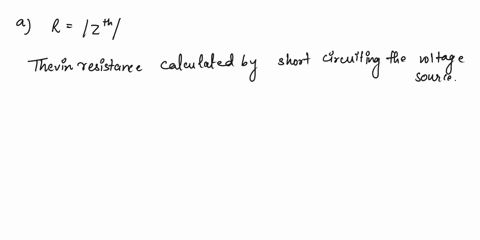 a) R = |z^th|
Thevin resistance calculated by short circuiting the voltage
source.